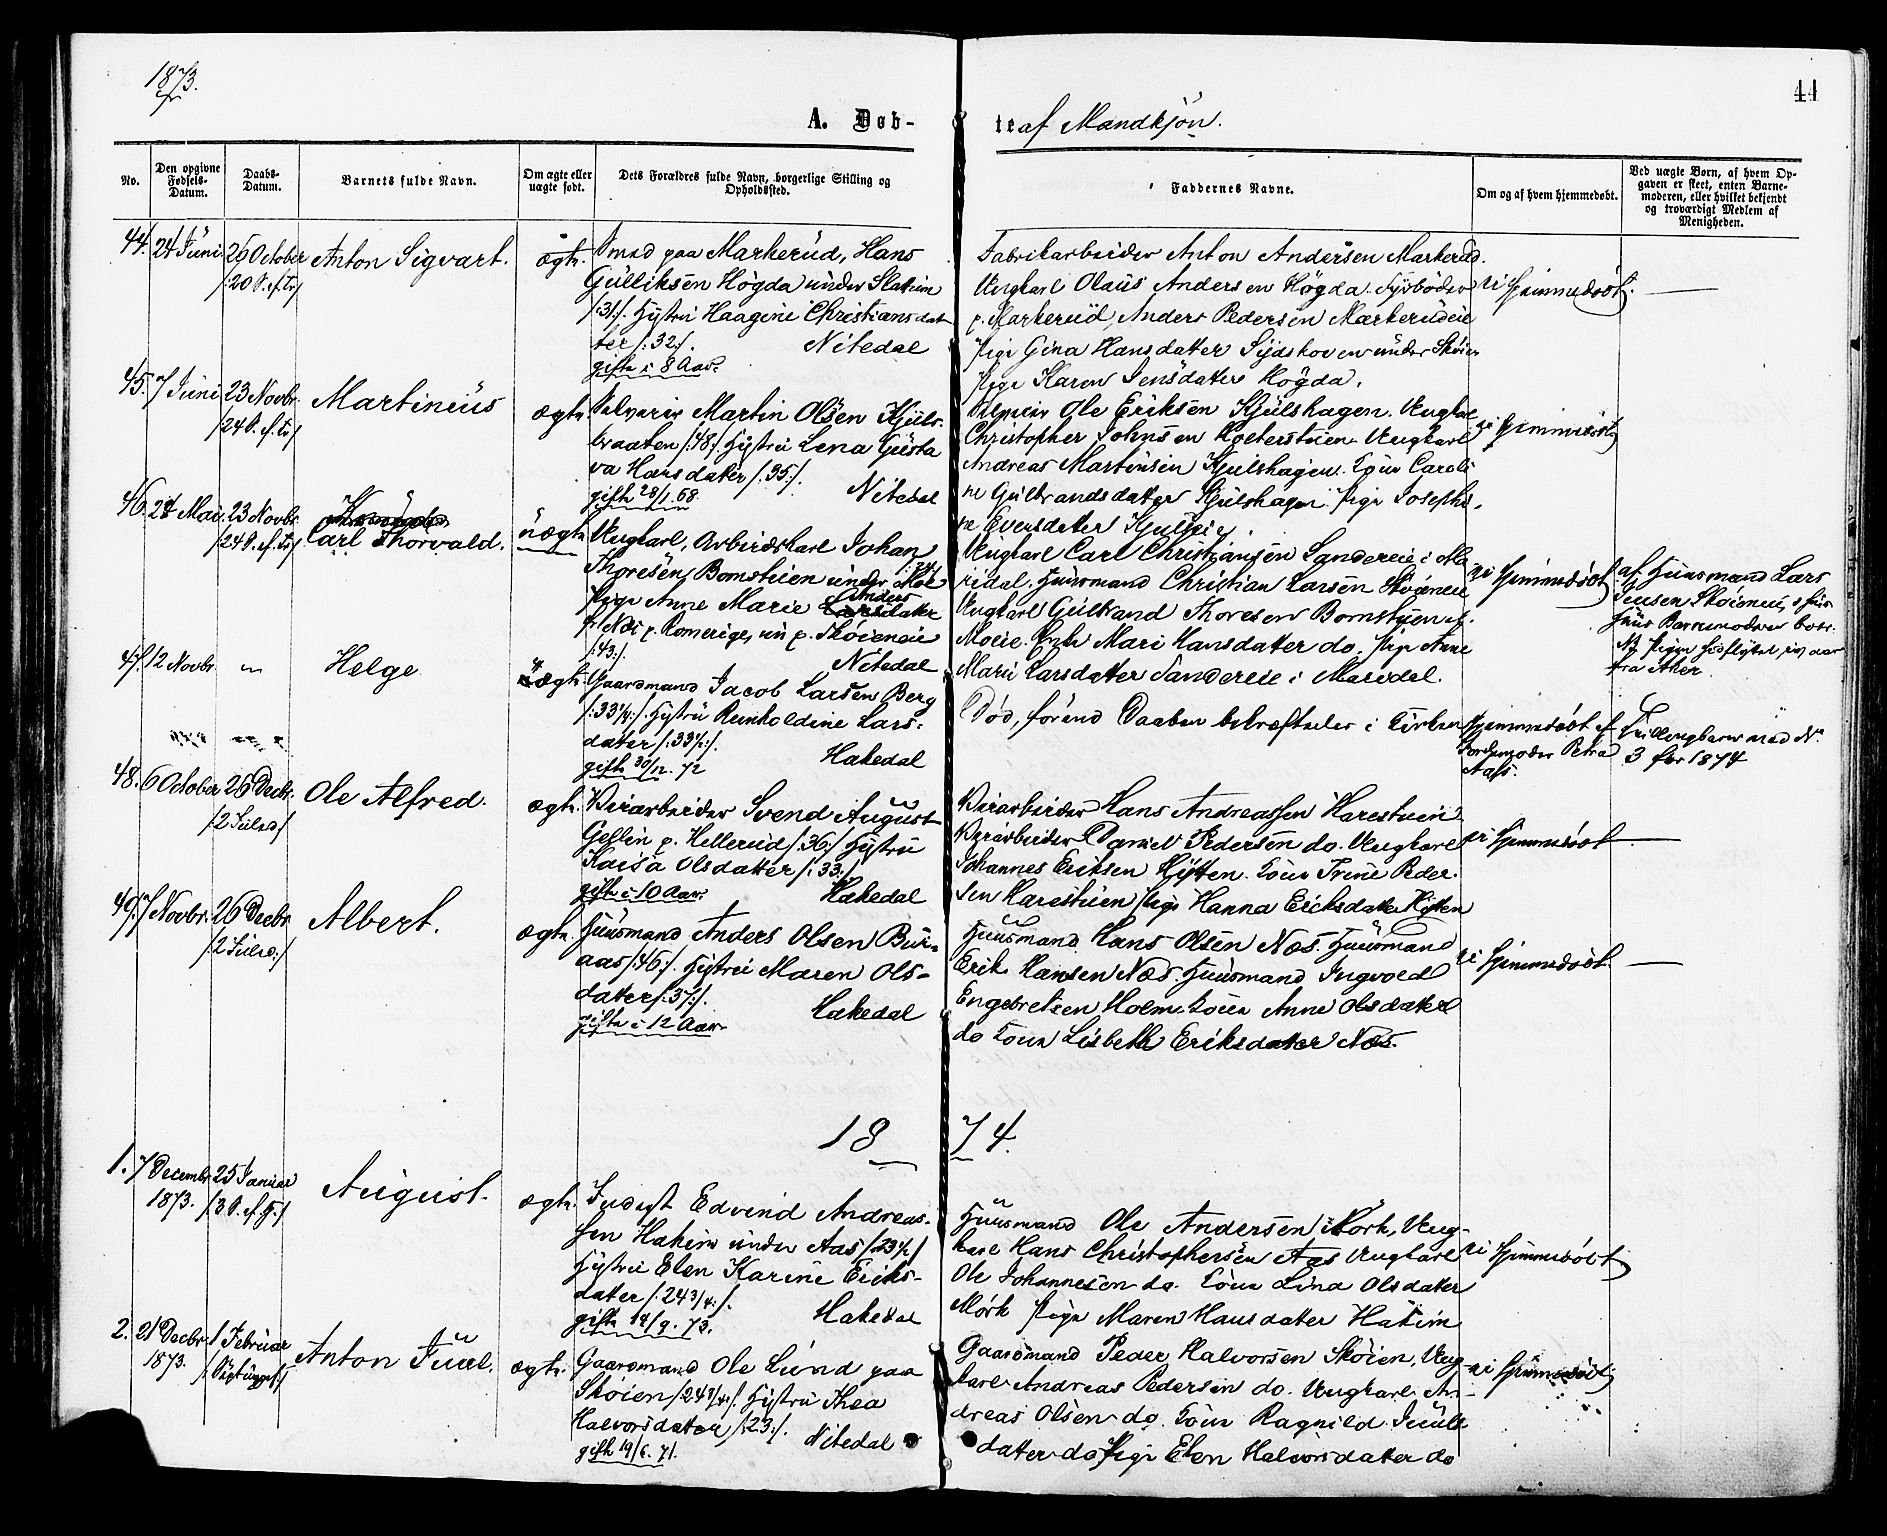 1873.
44
A. Døb-
te af Mandkjön.
No.
Den opgivne
Fødsels-
Datum.
Daabs-
Datum.
Barnets fulde Navn.
Om ægte eller
uægte født.
Dets Forældres fulde Navn, borgerlige Stilling og
Opholdssted.
Faddernes Navne.
Om og af hvem hjemmedøbt.
Ved uægte Børn, af hvem Op-
gaven er skeet, enten Barne-
moderen, eller hvilket bekjendt
og troværdigt Medlem af
Menigheden.
44.
24 Juni
26 October
/20 S. ef. Tr/
Anton Sigvart.
ægte.
Smed paa Markerud, Hans
Gulliksen Högda under Slatum
/:31:/. Hustru Haagine Christiansdat
ter /:32:/. Nitedal
gifte i 8 Aar.
Fabrikarbeider Anton Andersen Markerud.
Ungkarl Olaus Andersen Högda. Fyrböder
p. Markerud, Anders Pedersen Markerudeie
Pige Gina Hansdatter Sydskoven under Skøien
Pige Karen Jensdatter Högda.
ei hjemmedøbt.
45.
7 Juni
23 Novbr.
/24 S. ef. Tr/
Martinius
ægte
Selveier Martin Olsen Kjuls-
braaten /:48:/ Hustru Lena Gusta
va Hansdatter /:35:/.
gifte 28/1. 68. Nitedal
Selveier Ole Eriksen Kjulshagen. Ungkarl
Christopher Johnsen Ungkarl
Andreas Martinsen Kjulshagen. Kone Caroli
ne Gulbrandsdatter Kjulshagen. Pige Josephi-
ne Eversdatter
ei hjemmedøbt
46.
24 Mai
23 Novbr.
/24 S. ef. Tr/
Carl Thorvald.
uægte
Ungkarl, Arbeidskarl Johan
Thoresen, Bomstuen under Moe
Pige Anne Marie Anders
datter
fr. Næs p. Romerige, nu p. Skøieneie
/:43:/. Nitedal
Ungkarl Carl Christiansen Sandereie i Ma
ridal. Huusmand Christian Larsen Skøieneie
Ungkarl Gulbrand Thoresen Bomstuen u.
Moeie. Enke Mari Hansdatter do. Pige Anne
Marie Larsdatter Sandereie i Maridal.
ei hjemmedøbt
af Huusmand Lars
Jensen Skøieneie, i hvis
Huus Barnemoderen boer.
NB Pigen hidflyttet iaar
fra Aker.
47.
12 Novbr.
"
Helge
ægte.
Gaardmand Jacob Larsen Berg
/:33 1/4:/. Hustru Reinholdine Lars-
datter /:33 1/2:/.
gifte 30/12. 72 Hakedal
Død, førend Daaben bekræftedes i Kirken
Hjemmedøbt af
Jordemoder Petra
Aas.
Tvillingbarn med No.
3 for 1874
48.
6 October
26 Decbr.
/2 Juled/
Ole Alfred.
ægte.
Veiarbeider Svend August
Gesslin p. Hellerud /:36:/ Hustru
Kaisa Olsdatter /:33:/
gifte i 10 Aar. Hakedal
Veiarbeider Hans Andreassen Harestuen.
Veiarbeider Daniel Pedersen do. Ungkarl
Johannes Eriksen Hytten. Kone Trine Peder-
sen Harestuen Pige Hanna Ericksdatter Hytten
ei hjemmedøbt
49.
7 Novbr.
26 Decbr
/2 Juled:/
Albert.
ægte.
Huusmand Anders Olsen Bur-
aas /:46:/. Hustru Maren Ols-
datter /:37:/.
gifte i 12 Aar. Hakedal
Huusmand Hans Olsen Næs. Huusmand
Erik Hansen Næs. Huusmand Ingvold
Engebretsen Holm. Kone Anne Olsdatter
do Kone Lisbeth Eriksdatter Næs.
ei hjemmedøbt.
18 74.
1.
7 Decembr
1873.
25 Januar
/3 S. ef. H.:/
August.
ægte.
Inderst Edvind Andreas-
sen Hakim under Aas /:23 1/2/
Hustru Elen Karine Eriks-
datter /:24 3/4:/.
gifte 19/9. 73. Hakedal
Huusmand Ole Andersen Mörk, Ung-
karl Hans Christophersen Aas Ungkarl
Ole Johannesen do. Kone Lina Olsdatter
Mörk Pige Maren Hansdatter Hakim
ei hjemmedøbt
2.
21 Decbr
1873.
1 Februar
Anton Juul.
ægte.
Gaardmand Ole Lund paa
Skøien /:24 3/4:/. Hustru Thea
Halvorsdatter /:23:/.
gifte 19/6. 71. Nitedal
Gaardmand Peder Halvorsen Skøien, Ung-
karl Andreas Pedersen do. Ungkarl An-
dreas Olsen do. Kone Ragnild Juuls
datter do Pige Elen Halvorsdatter do
ei hjemmedøbt